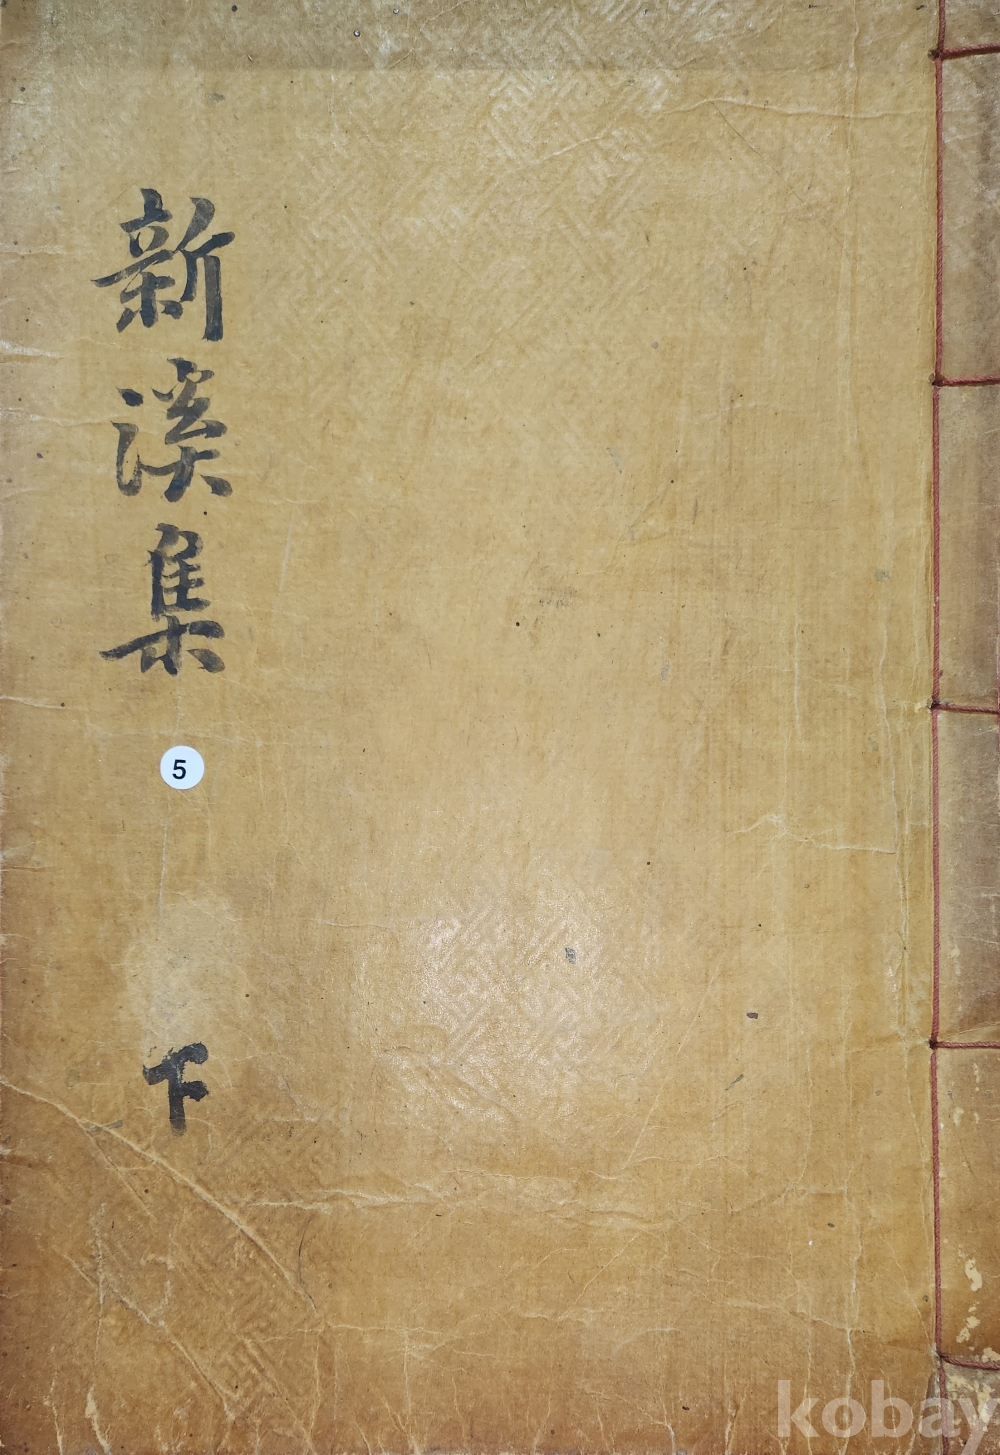 新溪集
5
下
kobay